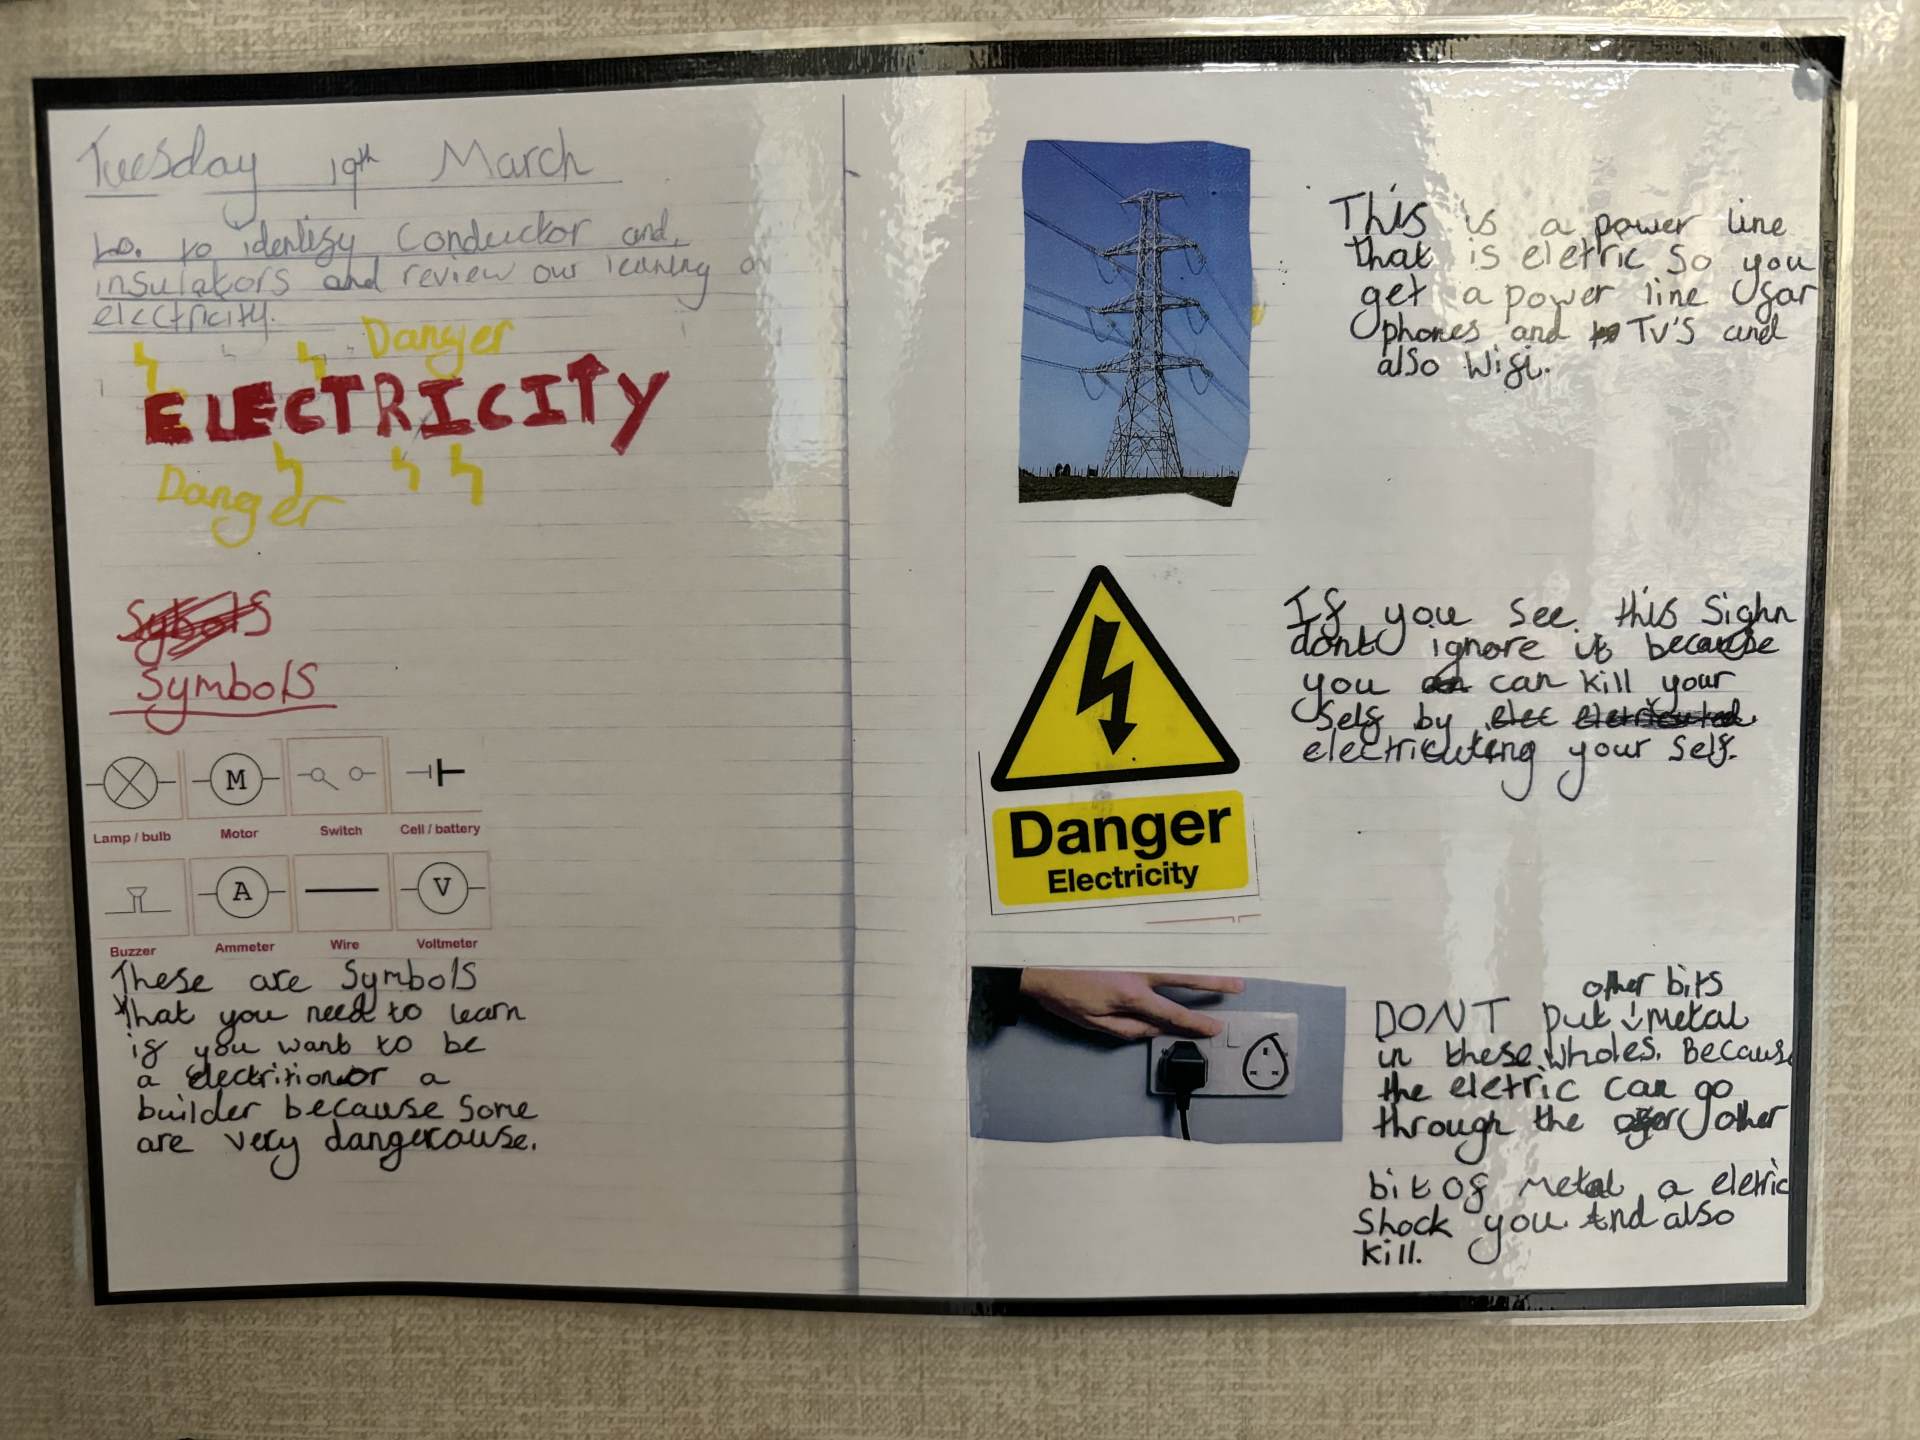 Tuesday 19th March
Lo. to identify Conductor and,
insulators and review our learning on
electricity.
Danger
ELECTRICITY
Danger
Sybols
Symbols
M
Lamp / bulb Motor Switch Cell / battery
A V
Buzzer Ammeter Wire Voltmeter
These are Symbols
that you need to learn
if you want to be
a electrition or a
builder because some
are very dangerouse.
This is a power line
that is eletric so you
get a power line for
phones and TV's and
also Wifi.
If you see this Sighn
dont ignore it because
you can kill your
self by elec eletricuted
electricuting your self.
Danger
Electricity
other bits
DONT put ↓ metal
in these wholes. Because
the eletric can go
through the other
bit of metal a eletric
Shock you. And also
kill.